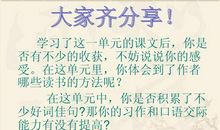 大家齐分享！
学习了这一单元的课文后，你是
否有不少的收获，不妨说说你的感
受。在这单元里，你体会到了作者
哪些读书的方法呢？
在这单元中，你是否积累了不
少好词佳句?那你的习作和口语交际
能力有没有提高?